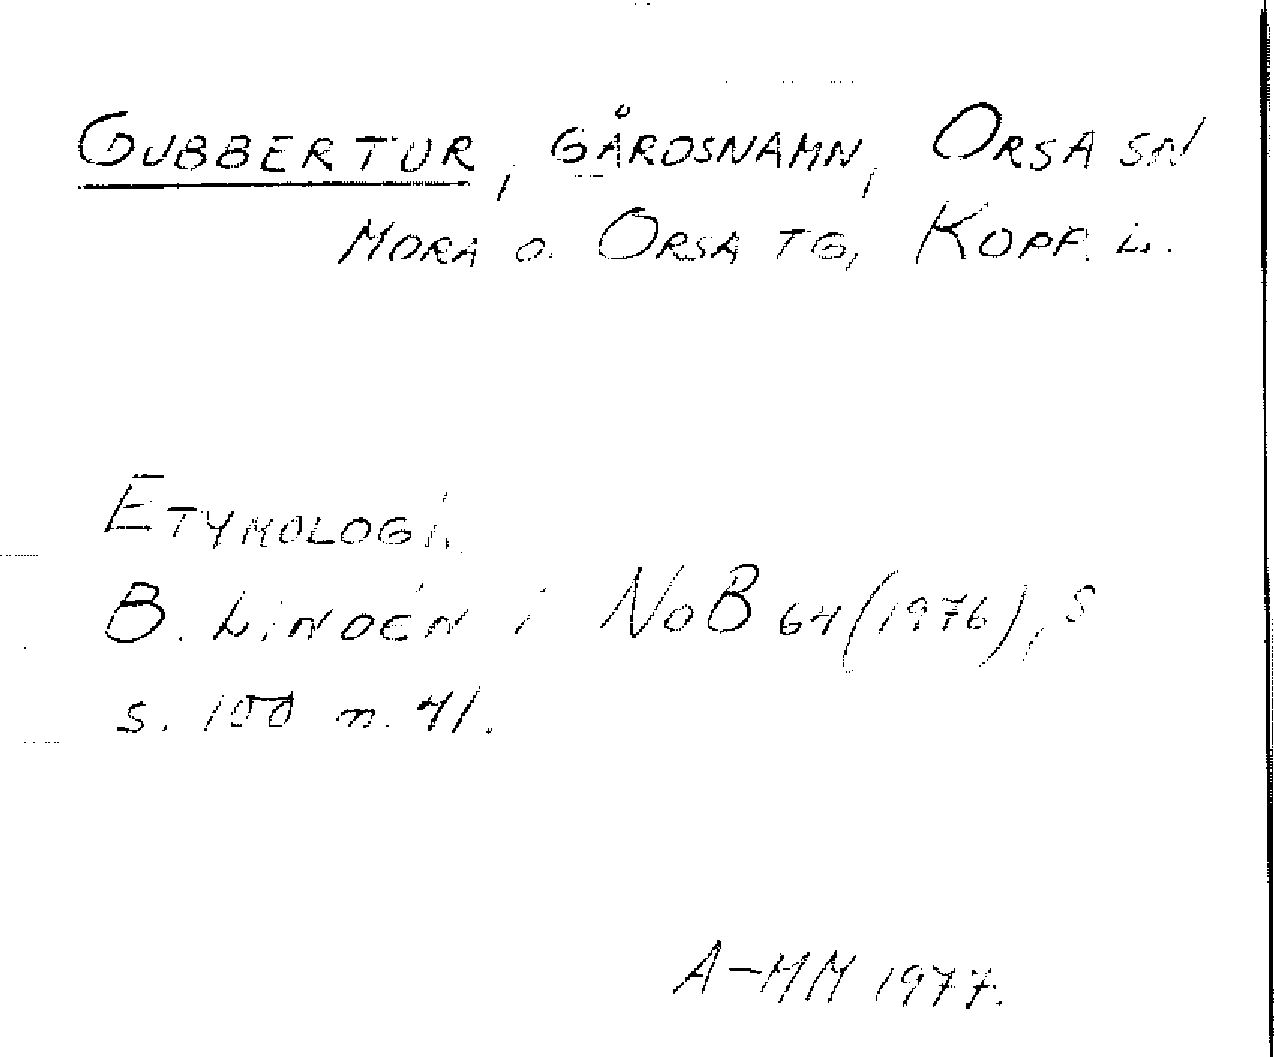 GUBBERTUR, GÅRDSNAMN, ORSA SN
MORA O. ORSA TG, KOPP. L.
ETYMOLOGI.
B. LINDÉN i NoB 64 (1976), S
s. 100 n. 41.
A-MM 1977.